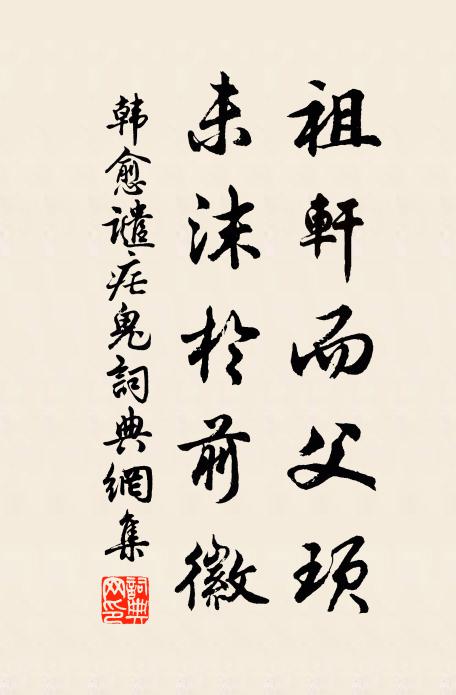 祖軒而父頊
未沫於前徽
韓愈譴瘧鬼詞典網集
詞典網印